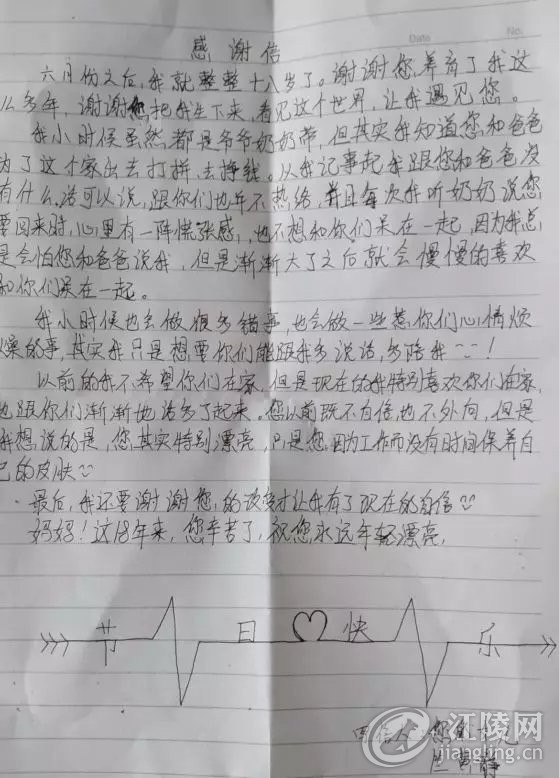 Date No.
感谢信
六月份之后,我就整整十八岁了。谢谢您,养育了我这
么多年,谢谢您,把我生下来,看见这个世界,让我遇见您。
我小时候虽然都是爷爷奶奶带,但其实我知道您和爸爸
为了这个家出去打拼,去挣钱。从我记事起我跟您和爸爸没
有什么话可以说,跟你们也并不热络,并且每次我听奶奶说您
要回来时,心里有一阵慌张感,也不想和你们呆在一起,因为我总
是会怕您和爸爸说我,但是渐渐大了之后就会慢慢的喜欢
和你们呆在一起。
我小时候也会做很多错事,也会做一些惹你们心情烦
燥的事,其实我只是想要你们能跟我多说话,多陪我!
以前的我不希望你们在家,但是现在的我特别喜欢你们在家,
也跟你们渐渐地话多了起来。您以前既不自信也不外向,但是
我想说的是,您其实特别漂亮,只是您因为工作而没有时间保养自
己的皮肤
最后,我还要谢谢您,的改变才让我有了现在的自信
妈妈!这18年来,您辛苦了,祝您永远年轻漂亮,
节日快乐
江陵网
jiangling.cn